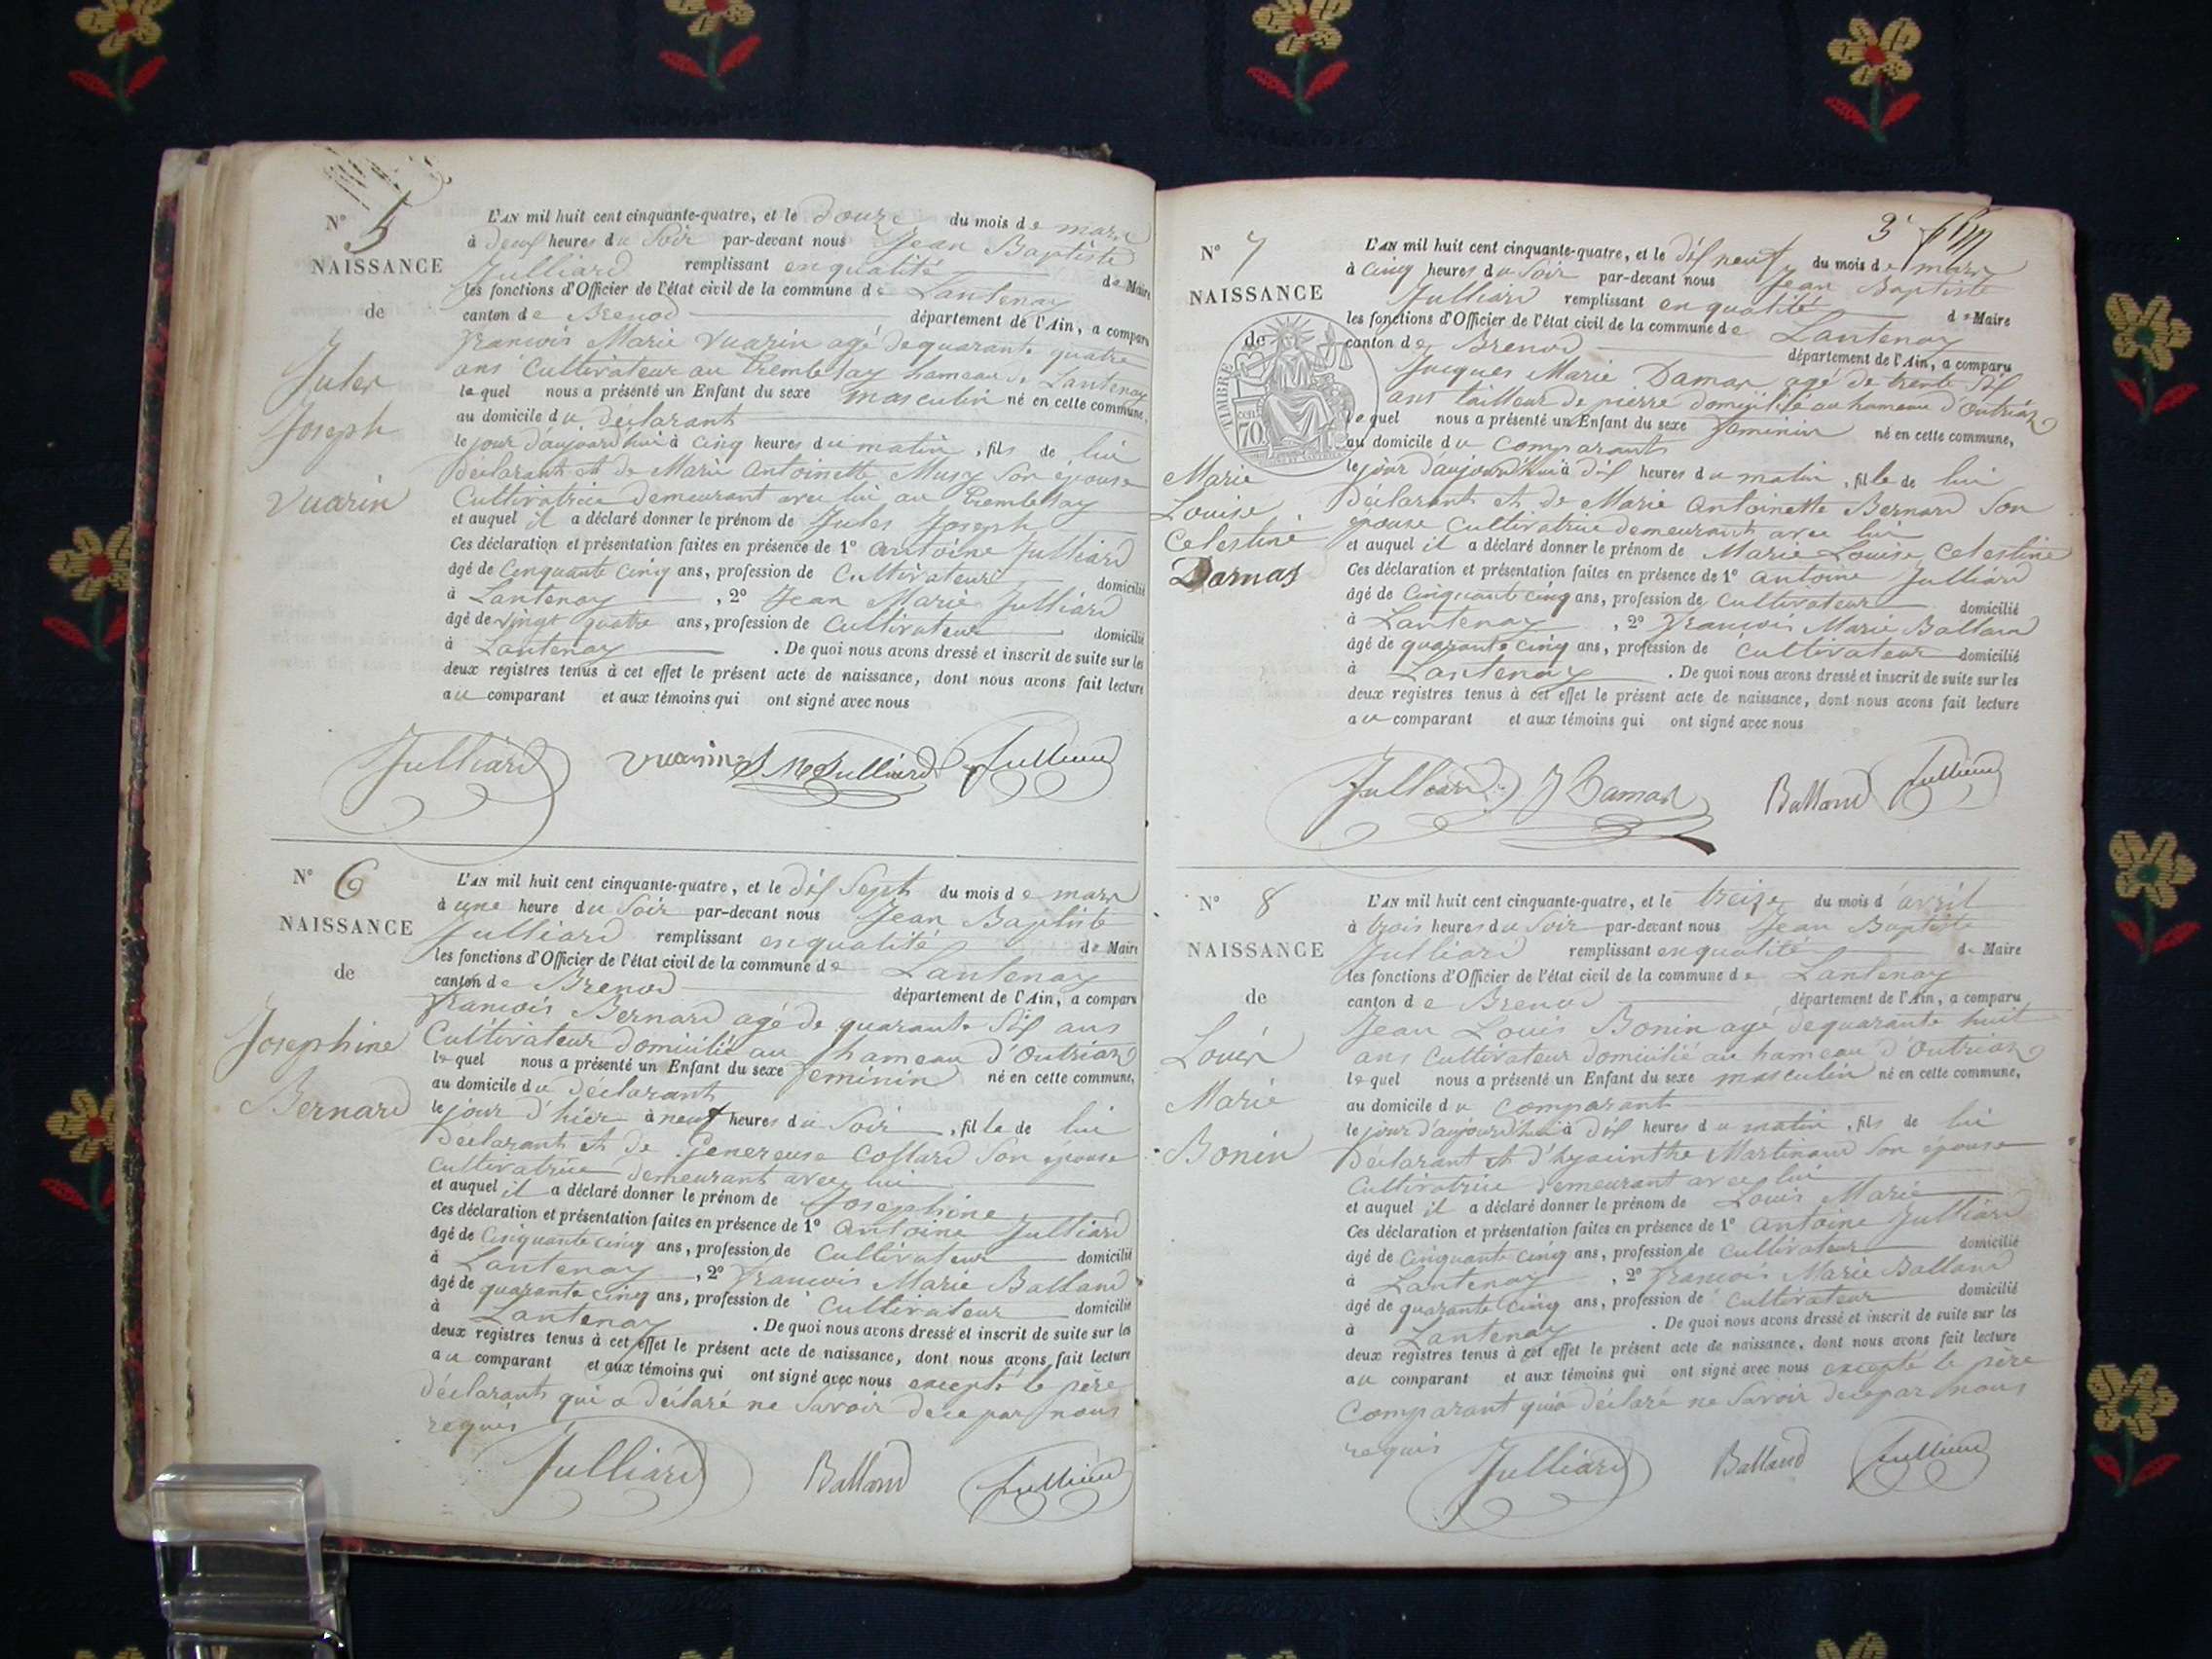 N° 5
NAISSANCE
de
Jules
Joseph
Vuarin
L'AN mil huit cent cinquante-quatre, et le douze du mois de mars
à deux heures du soir par-devant nous Jean Baptiste
Julliard remplissant en qualité de Maire
les fonctions d'Officier de l'état civil de la commune de Lantenay
canton de Brenod département de l'Ain, a comparu
François Marie Vuarin agé de quarante quatre
ans Cultivateur au Tremblay hameau de Lantenay
lequel nous a présenté un Enfant du sexe masculin né en cette commune,
au domicile du déclarant
le jour d'aujourd'hui à cinq heures du matin, fils de lui
déclarant et de Marie Antoinette Musy son épouse
Cultivatrice demeurant avec lui au Tremblay
et auquel il a déclaré donner le prénom de Jules Joseph
Ces déclaration et présentation faites en présence de 1° Antoine Julliard
âgé de cinquante cinq ans, profession de Cultivateur domicilié
à Lantenay, 2° Jean Marie Julliard
âgé de vingt quatre ans, profession de Cultivateur domicilié
à Lantenay. De quoi nous avons dressé et inscrit de suite sur les
deux registres tenus à cet effet le présent acte de naissance, dont nous avons fait lecture
au comparant et aux témoins qui ont signé avec nous
Julliard Vuarin J M Julliard Julliard
N° 6
NAISSANCE
de
Josephine
Bernard
L'AN mil huit cent cinquante-quatre, et le dix sept du mois de mars
à une heure du soir par-devant nous Jean Baptiste
Julliard remplissant en qualité de Maire
les fonctions d'Officier de l'état civil de la commune de Lantenay
canton de Brenod département de l'Ain, a comparu
François Bernard agé de quarante six ans
Cultivateur domicilié au hameau d'Outriaz
lequel nous a présenté un Enfant du sexe feminin né en cette commune,
au domicile du déclarant
le jour d'hier à neuf heures du soir, fille de lui
déclarant et de Genereuse Collard son épouse
Cultivatrice demeurant avec lui
et auquel il a déclaré donner le prénom de Josephine
Ces déclaration et présentation faites en présence de 1° Antoine Julliard
âgé de Cinquante cinq ans, profession de Cultivateur domicilié
à Lantenay, 2° François Marie Balland
âgé de quarante cinq ans, profession de Cultivateur domicilié
à Lantenay. De quoi nous avons dressé et inscrit de suite sur les
deux registres tenus à cet effet le présent acte de naissance, dont nous avons fait lecture
au comparant et aux témoins qui ont signé avec nous excepté le père
déclarant qui a déclaré ne savoir de ce par nous
requis
Julliard Balland Julliard
3
N° 7
NAISSANCE
de
TIMBRE
70
Marie
Louise
Celestine
Damas
L'AN mil huit cent cinquante-quatre, et le dix neuf du mois de mars
à cinq heures du soir par-devant nous Jean Baptiste
Julliard remplissant en qualité de Maire
les fonctions d'Officier de l'état civil de la commune de Lantenay
canton de Brenod département de l'Ain, a comparu
Jacques Marie Damas agé de trente six
ans tailleur de pierre domicilié au hameau d'Outriaz
lequel nous a présenté un Enfant du sexe feminin né en cette commune,
au domicile du comparant
le jour d'aujourd'hui à dix heures du matin, fille de lui
déclarant et de Marie Antoinette Bernard son
épouse Cultivatrice demeurant avec lui
et auquel il a déclaré donner le prénom de Marie Louise Celestine
Ces déclaration et présentation faites en présence de 1° Antoine Julliard
âgé de Cinquante cinq ans, profession de Cultivateur domicilié
à Lantenay, 2° François Marie Balland
âgé de quarante cinq ans, profession de Cultivateur domicilié
à Lantenay. De quoi nous avons dressé et inscrit de suite sur les
deux registres tenus à cet effet le présent acte de naissance, dont nous avons fait lecture
au comparant et aux témoins qui ont signé avec nous
Julliard J Damas Balland Julliard
N° 8
NAISSANCE
de
Louis
Marie
Bonin
L'AN mil huit cent cinquante-quatre, et le treize du mois d'avril
à trois heures du soir par-devant nous Jean Baptiste
Julliard remplissant en qualité de Maire
les fonctions d'Officier de l'état civil de la commune de Lantenay
canton de Brenod département de l'Ain, a comparu
Jean Louis Bonin agé de quarante huit
ans Cultivateur domicilié au hameau d'Outriaz
lequel nous a présenté un Enfant du sexe masculin né en cette commune,
au domicile du comparant
le jour d'aujourd'hui à dix heures du matin, fils de lui
déclarant et d'hyacinthe Martinand son épouse
Cultivatrice demeurant avec lui
et auquel il a déclaré donner le prénom de Louis Marie
Ces déclaration et présentation faites en présence de 1° Antoine Julliard
âgé de Cinquante cinq ans, profession de Cultivateur domicilié
à Lantenay, 2° François Marie Balland
âgé de quarante cinq ans, profession de Cultivateur domicilié
à Lantenay. De quoi nous avons dressé et inscrit de suite sur les
deux registres tenus à cet effet le présent acte de naissance, dont nous avons fait lecture
au comparant et aux témoins qui ont signé avec nous excepté le père
Comparant qui a déclaré ne savoir de ce par nous
requis
Julliard Balland Julliard